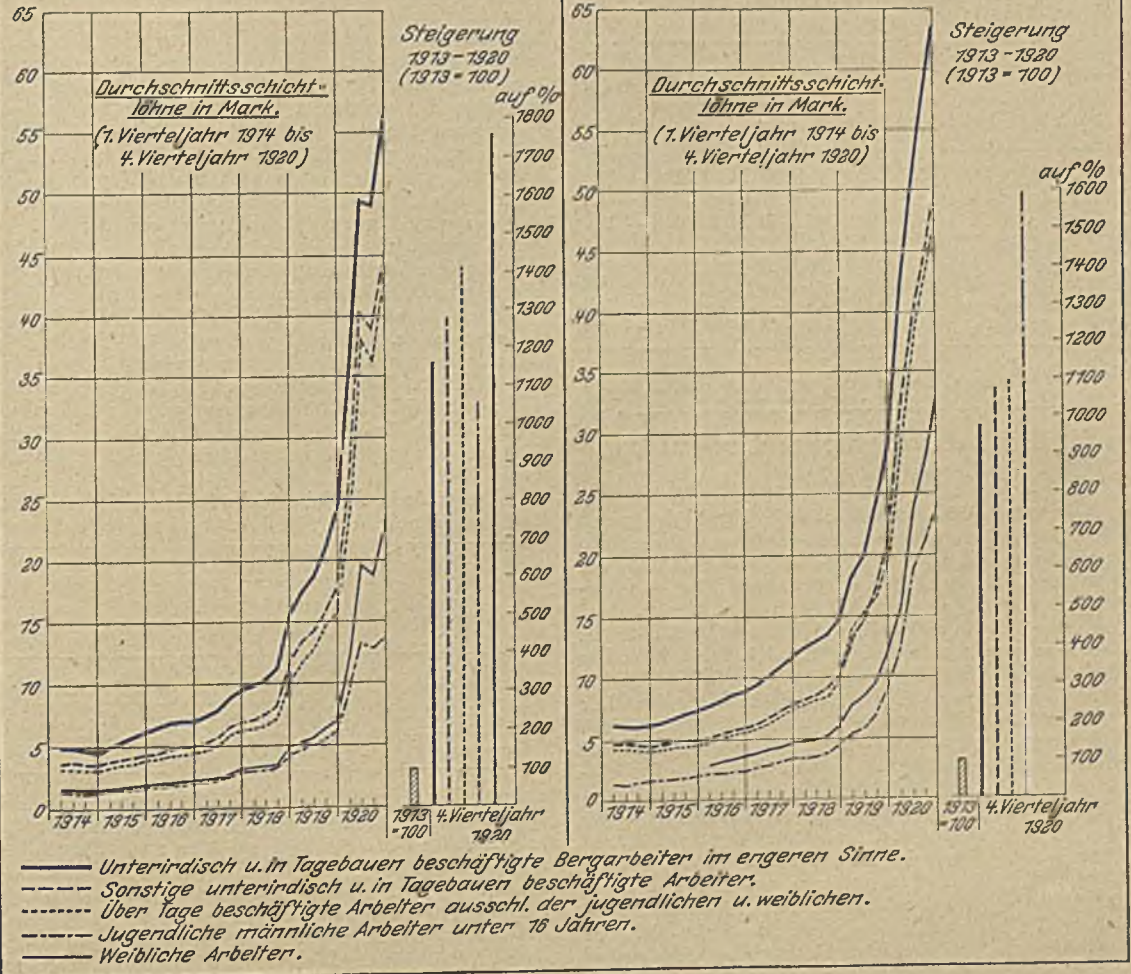 65
60
55
50
45
40
35
30
25
20
15
10
5
0
Durchschnittsschicht-
löhne in Mark.
(1. Vierteljahr 1914 bis
4. Vierteljahr 1920)
1914 1915 1916 1917 1918 1919 1920
Steigerung
1913-1920
(1913 = 100)
auf %
1800
1700
1600
1500
1400
1300
1200
1100
1000
900
800
700
600
500
400
300
200
100
1913
=100
4. Vierteljahr
1920
65
60
55
50
45
40
35
30
25
20
15
10
5
0
Durchschnittsschicht-
löhne in Mark.
(1. Vierteljahr 1914 bis
4. Vierteljahr 1920)
1914 1915 1916 1917 1918 1919 1920
Steigerung
1913-1920
(1913 = 100)
auf %
1600
1500
1400
1300
1200
1100
1000
900
800
700
600
500
400
300
200
100
1913
=100
4. Vierteljahr
1920
Unterirdisch u. in Tagebauen beschäftigte Bergarbeiter im engeren Sinne.
Sonstige unterirdisch u. in Tagebauen beschäftigte Arbeiter.
Über Tage beschäftigte Arbeiter ausschl. der jugendlichen u. weiblichen.
Jugendliche männliche Arbeiter unter 16 Jahren.
Weibliche Arbeiter.